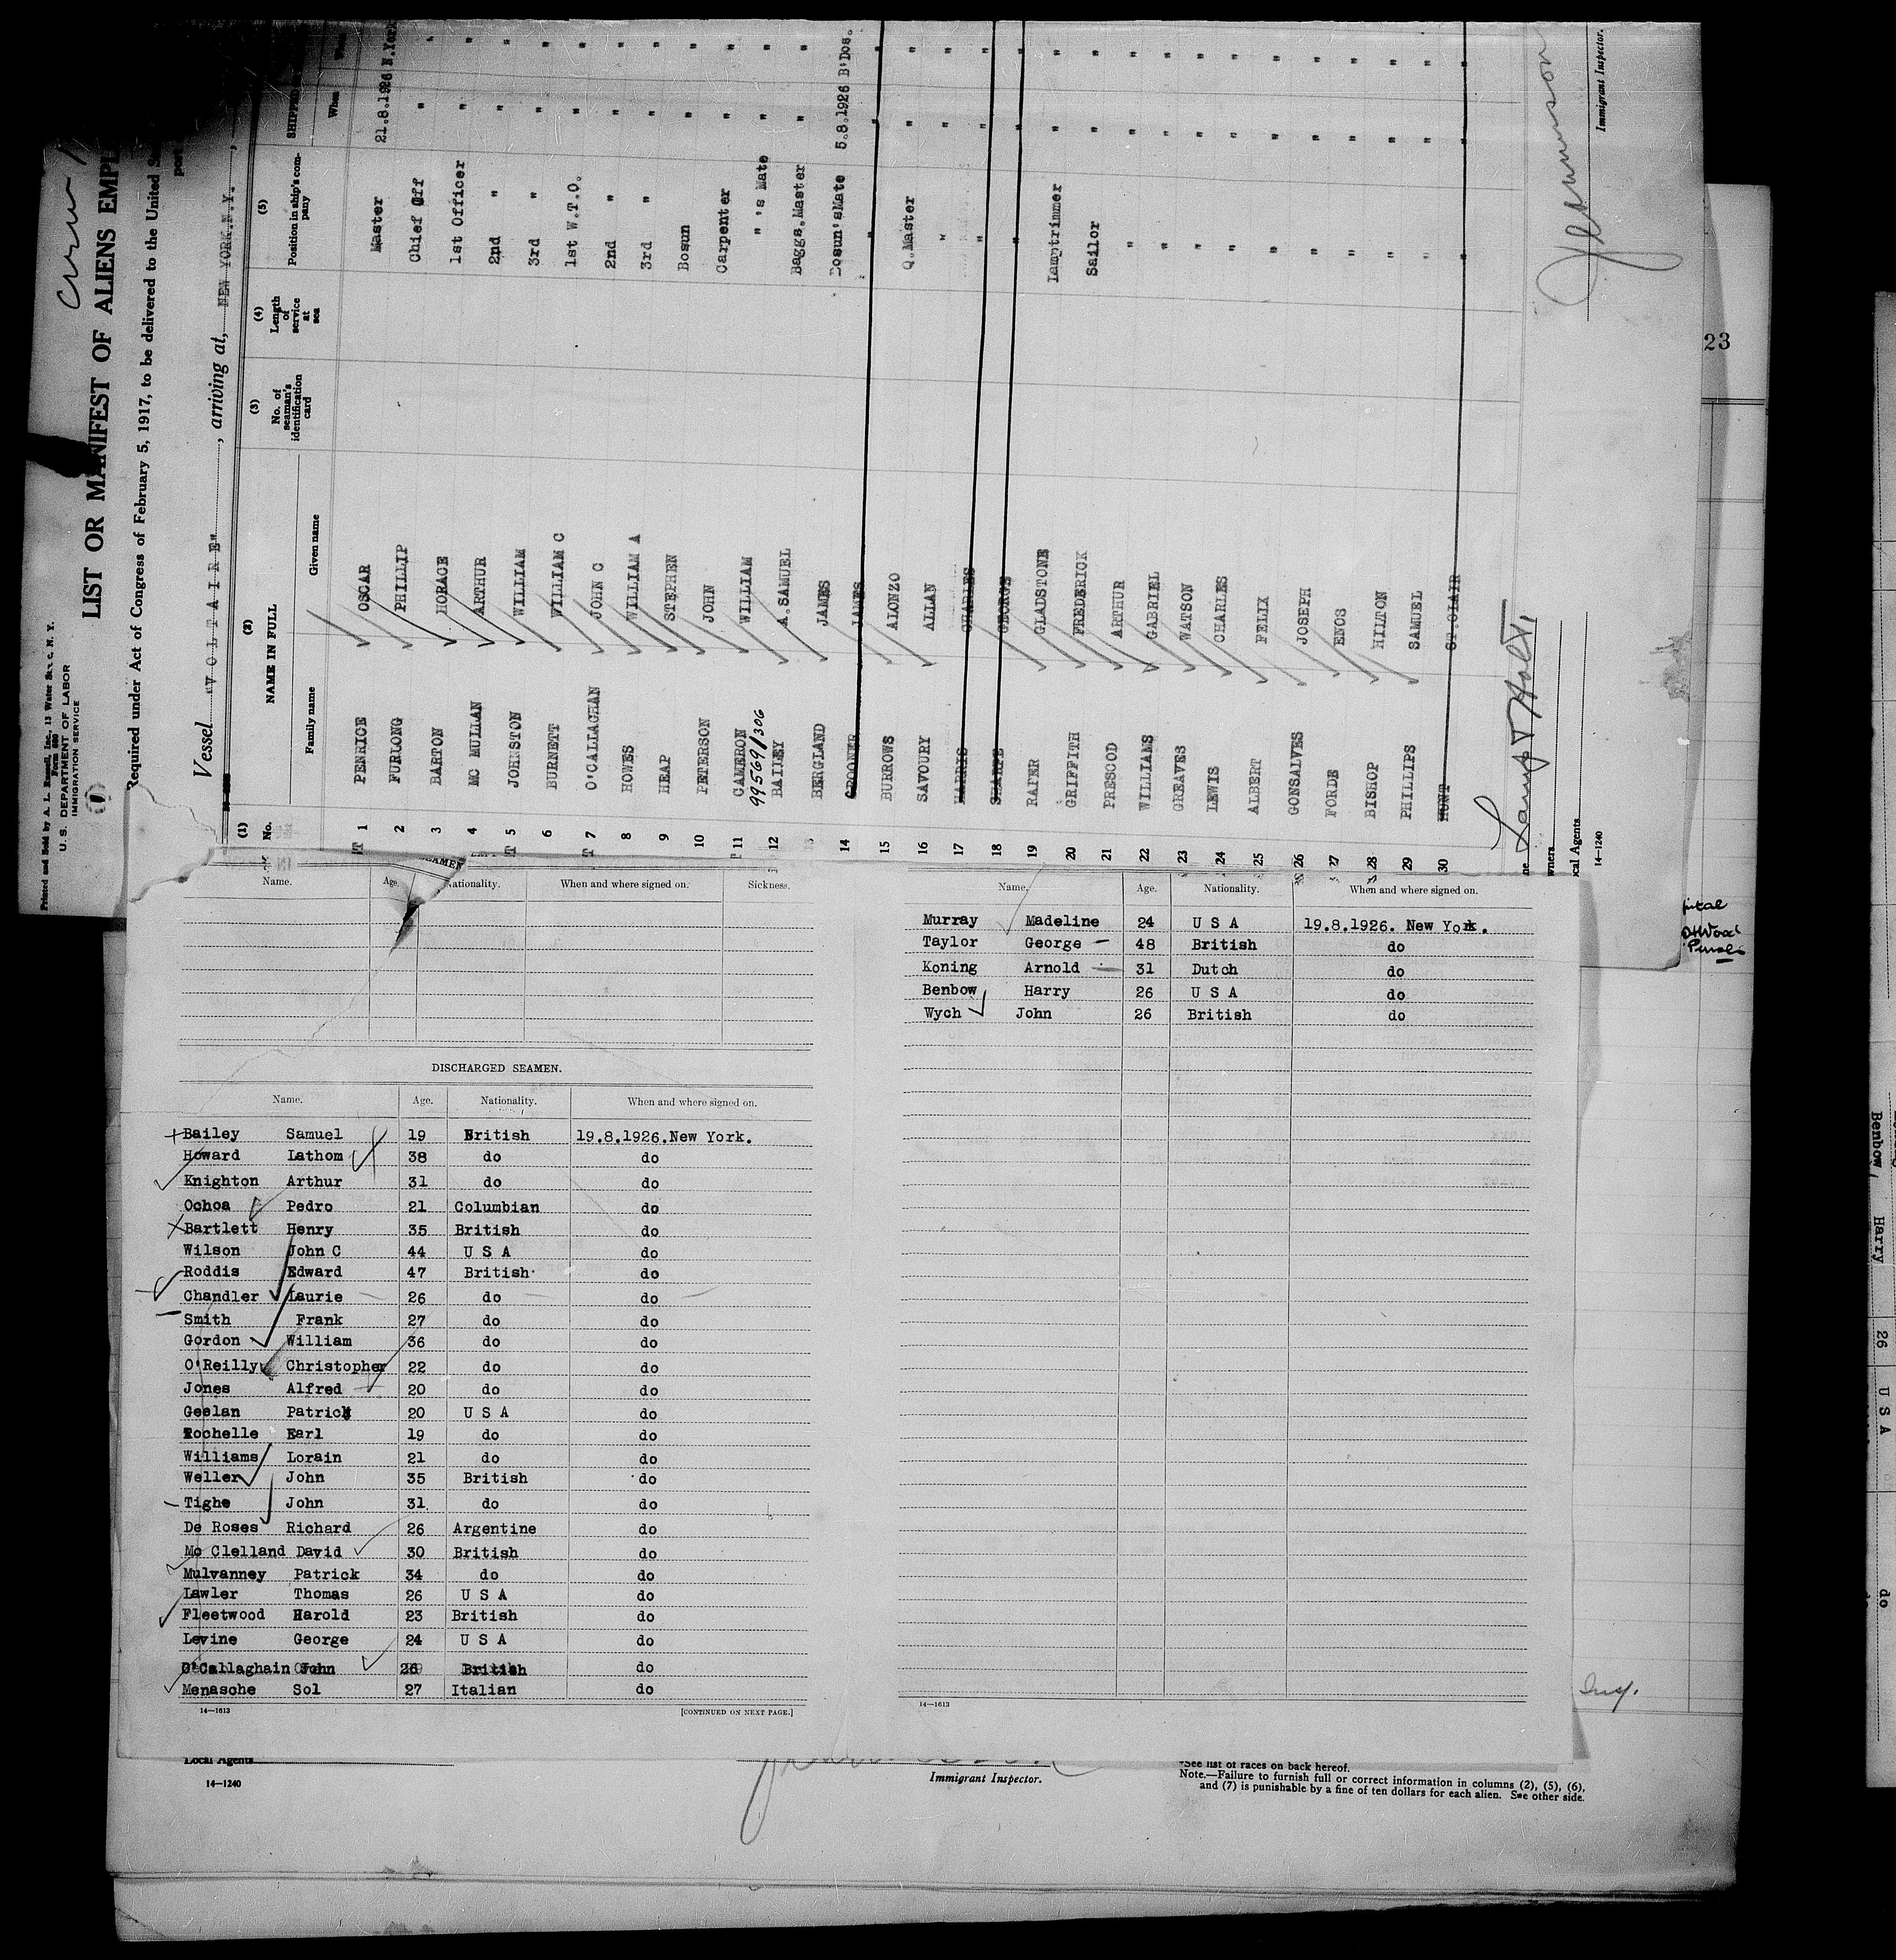 Printed and Sold by A. L. Russell, Inc., 13 Water St., N. Y.
Form 680
U. S. DEPARTMENT OF LABOR
IMMIGRATION SERVICE
Crew
LIST OR MANIFEST OF ALIENS EMPL
Required under Act of Congress of February 5, 1917, to be delivered to the United
port
Vessel "VOLTAIRE", arriving at, NEW YORK.N.Y.,
(1) (2) (3) (4) (5)
No. NAME IN FULL No. of seaman's identification card Length of service at sea Position in ship's company SHIPPED
Family name Given name When
1 PENRICE OSCAR Master 21.8.1926 N.York
2 FURLONG PHILLIP Chief Off " "
3 BARTON HORACE 1st Officer " "
4 MC MULLAN ARTHUR 2nd " " "
5 JOHNSTON WILLIAM 3rd " " "
6 BURNETT WILLIAM C 1st W.T.O. " "
7 O'CALLAGHAN JOHN C 2nd " " "
8 HOWES WILLIAM A 3rd " " "
9 HEAP STEPHEN Bosun " "
10 PETERSON JOHN Carpenter " "
11 CAMERON WILLIAM " 's Mate " "
99569/306
12 BAILEY A.SAMUEL Baggs.Master " "
BERGLAND JAMES Bosun'sMate 5.8.1926 B'Dos.
14 GROONER JAMES " " "
15 BURROWS ALONZO Q.Master " "
16 SAVOURY ALLAN " " "
17 HARRIS CHARLES " " "
18 SHARPE GEORGE " " "
19 RAPER GLADSTONE Lamptrimmer " "
20 GRIFFITH FREDERICK Sailor " "
21 PRESCOD ARTHUR " " "
22 WILLIAMS GABRIEL " " "
23 GREAVES WATSON " " "
24 LEWIS CHARLES " " "
25 ALBERT FELIX " " "
26 GONSALVES JOSEPH " " "
27 FORDE ENOS " " "
28 BISHOP HILTON " " "
29 PHILLIPS SAMUEL " " "
30 HUNT ST.CLAIR " " "
Lamport & Holt.
wners
cal Agents
14—1240
Immigrant Inspector.
23
Name. Age. Nationality. When and where signed on. Sickness.
DISCHARGED SEAMEN.
Name. Age. Nationality. When and where signed on.
Bailey Samuel 19 British 19.8.1926.New York.
Howard Lathom 38 do do
Knighton Arthur 31 do do
Ochoa Pedro 21 Columbian do
Bartlett Henry 35 British do
Wilson John C 44 U S A do
Roddis Edward 47 British do
Chandler Laurie 26 do do
Smith Frank 27 do do
Gordon William 36 do do
O'Reilly Christopher 22 do do
Jones Alfred 20 do do
Geelan Patrick 20 U S A do
Rochelle Earl 19 do do
Williams Lorain 21 do do
Weller John 35 British do
Tighe John 31 do do
De Roses Richard 26 Argentine do
Mc Clelland David 30 British do
Mulvanney Patrick 34 do do
Lawler Thomas 26 U S A do
Fleetwood Harold 23 British do
Levine George 24 U S A do
O'Callaghain John 26 British do
Menasche Sol 27 Italian do
14—1613 [CONTINUED ON NEXT PAGE.]
Name. Age. Nationality. When and where signed on.
Murray Madeline 24 U S A 19.8.1926. New York.
Taylor George 48 British do
Koning Arnold 31 Dutch do
Benbow Harry 26 U S A do
Wych John 26 British do
14—1613
Local Agents
14—1240
Immigrant Inspector.
*See list of races on back hereof.
Note.—Failure to furnish full or correct information in columns (2), (5), (6),
and (7) is punishable by a fine of ten dollars for each alien. See other side.
Benbow Harry 26 U S A do